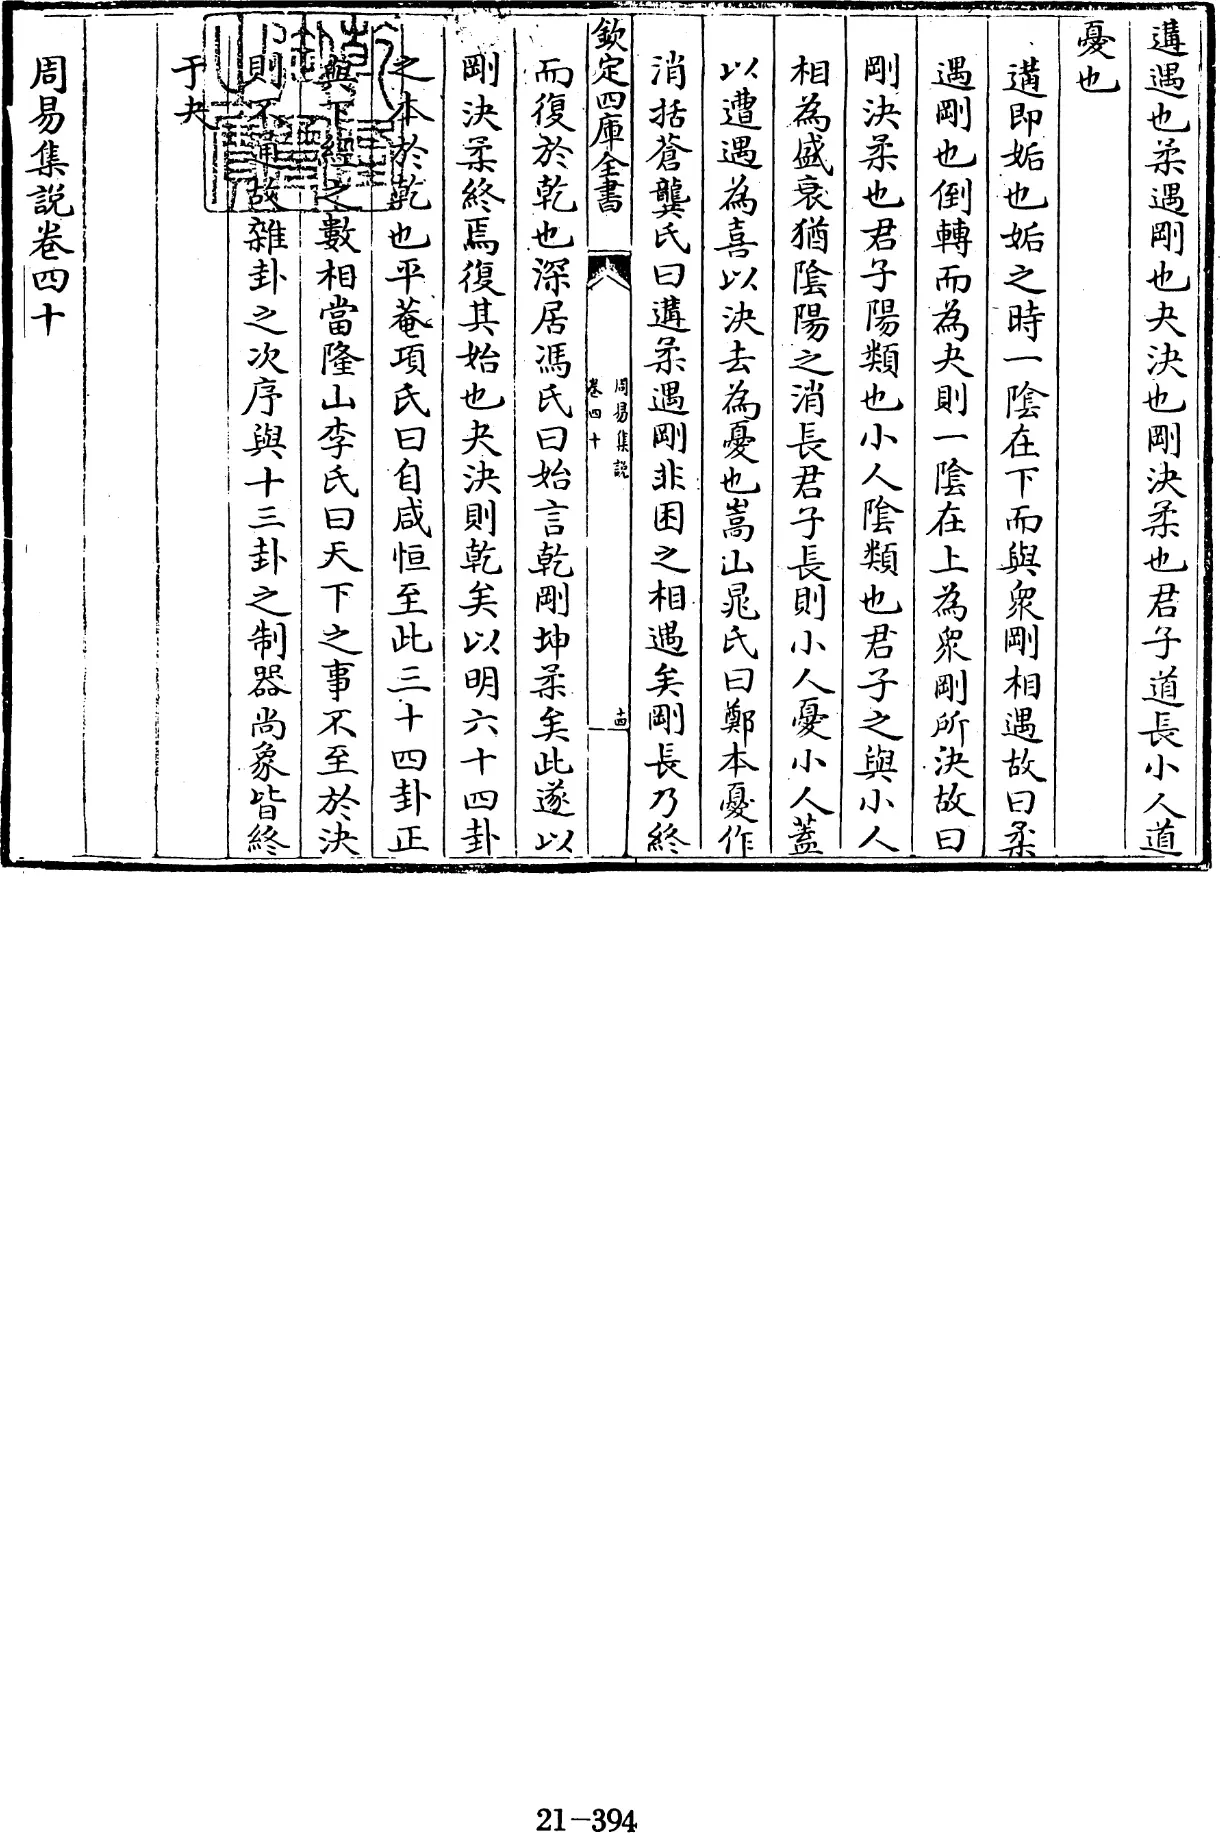 遘遇也柔遇剛也夬決也剛決柔也君子道長小人道
憂也
遘即姤也姤之時一陰在下而與衆剛相遇故曰柔
遇剛也倒轉而為夬則一陰在上為衆剛所決故曰
剛決柔也君子陽類也小人陰類也君子之與小人
相為盛衰猶陰陽之消長君子長則小人憂小人蓋
以遭遇為喜以決去為憂也嵩山晁氏曰鄭本憂作
消括蒼龔氏曰遘柔遇剛非困之相遇矣剛長乃終
欽定四庫全書
周易集說
卷四十
十四
而復於乾也深居馮氏曰始言乾剛坤柔矣此遂以
剛決柔終焉復其始也夬決則乾矣以明六十四卦
之本於乾也平菴項氏曰自咸恒至此三十四卦正
與下經之數相當隆山李氏曰天下之事不至於決
則不通故雜卦之次序與十三卦之制器尚象皆終
于夬
周易集説卷四十
21-394